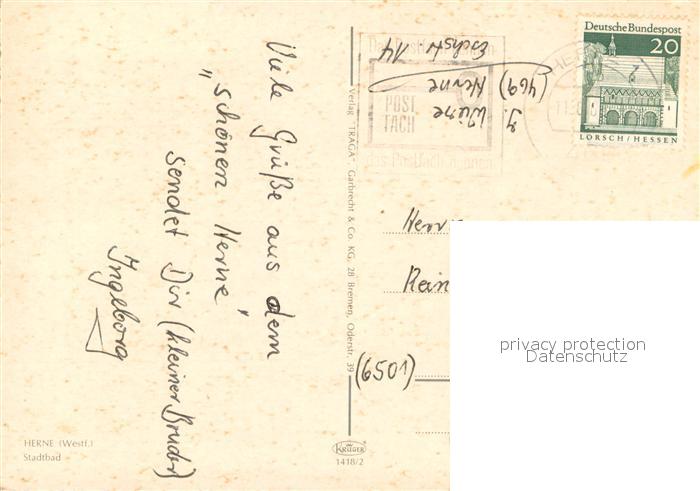 Viele Grüße aus dem
"schönen Herne"
sendet Dir (kleiner Bruder)
Ingeborg
HERNE (Westf.)
Stadtbad
Verlag "TRAGA" Garbrecht & Co. KG, 28 Bremen, Oderstr. 39
KRÜGER
1418/2
(469) Herne
14
POST
FACH
Deutsche Bundespost
20
LORSCH/HESSEN
Herrn
Rein
(6501)
privacy protection
Datenschutz